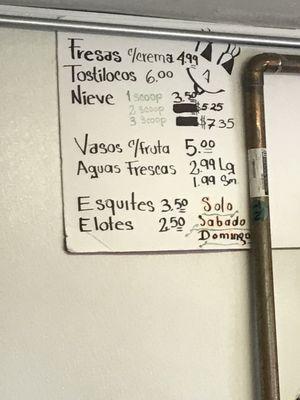 Fresas c/crema 4.99
Tostilocos 6.00
Nieve 1 scoop 3.50
2 scoop $5.25
3 scoop $7.35
Vasos c/fruta 5.00
Aguas Frescas 2.99 Lg
1.99 Sm.
Esquites 3.50 Solo
Elotes 2.50 Sabado
Domingo